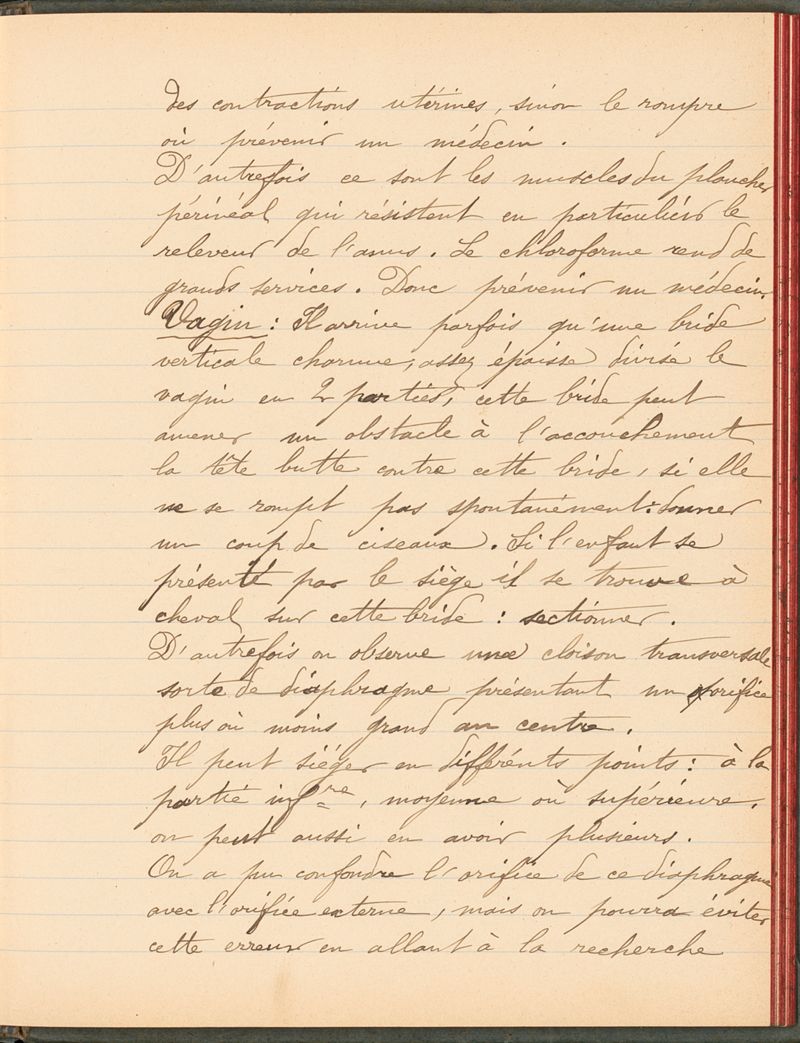 des contractions utérines, sinon le rompre
où prévenir un médecin.
D'autrefois ce sont les muscles du plancher
périnéal qui résistent en particulier le
releveur de l'anus. Le chloroforme rend de
grands services. Donc prévenir un médecin.
Vagin : Il arrive parfois qu'une bride
verticale charnue, assez épaisse divise le
vagin en 2 parties, cette bride peut
amener un obstacle à l'accouchement
la tête butte contre cette bride, si elle
ne se rompt pas spontanément : donner
un coup de ciseaux. Si l'enfant se
présente par le siège il se trouve à
cheval sur cette bride : sectionner.
D'autrefois on observe une cloison transversale
sorte de diaphragme présentant un orifice
plus où moins grand au centre.
Il peut siéger en différents points : à la
partie infre, moyenne où supérieure.
on peut aussi en avoir plusieurs.
On a pu confondre l'orifice de ce diaphragme
avec l'orifice externe, mais on pourra éviter
cette erreur en allant à la recherche